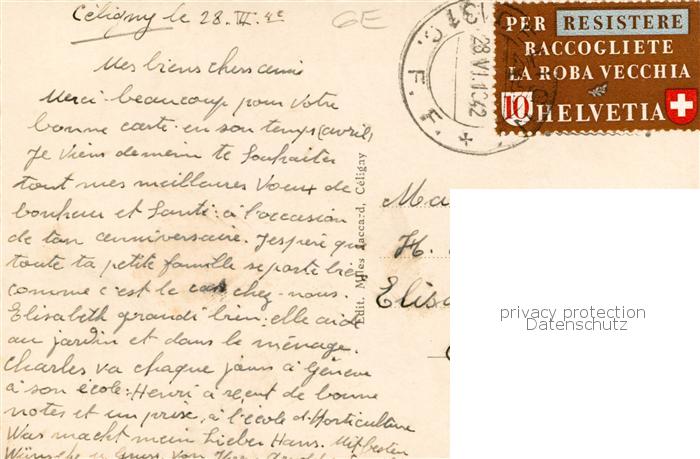 Céligny le 28. VI. 42
GE
Mes biens chers amis
Merci beaucoup pour Votre
bonne carte en son temps (avril,
Je viens demein te Souhaiter
tout mes meilleures Voeux de
bonheur et Santé: à l'occasion
de ton anniversaire. J'espère que
toute ta petite famille se porte bien
comme c'est le cas chez-nous.
Elisabeth grandi bien: elle aide
au jardin et dans le ménage.
Charles va chaque jours à Genève
à son école: Henri a reçut de bonne
notes et un prix, à l'école d'Horticulture
Was macht mein Lieber Hans. Mit besten
Wünsche u Gruss von
Edit. Mlles Jaccard, Céligny
28 VI. 1942
C.F.F.
PER RESISTERE
RACCOGLIETE
LA ROBA VECCHIA
10 HELVETIA
Ma
H.
Elisa
privacy protection
Datenschutz